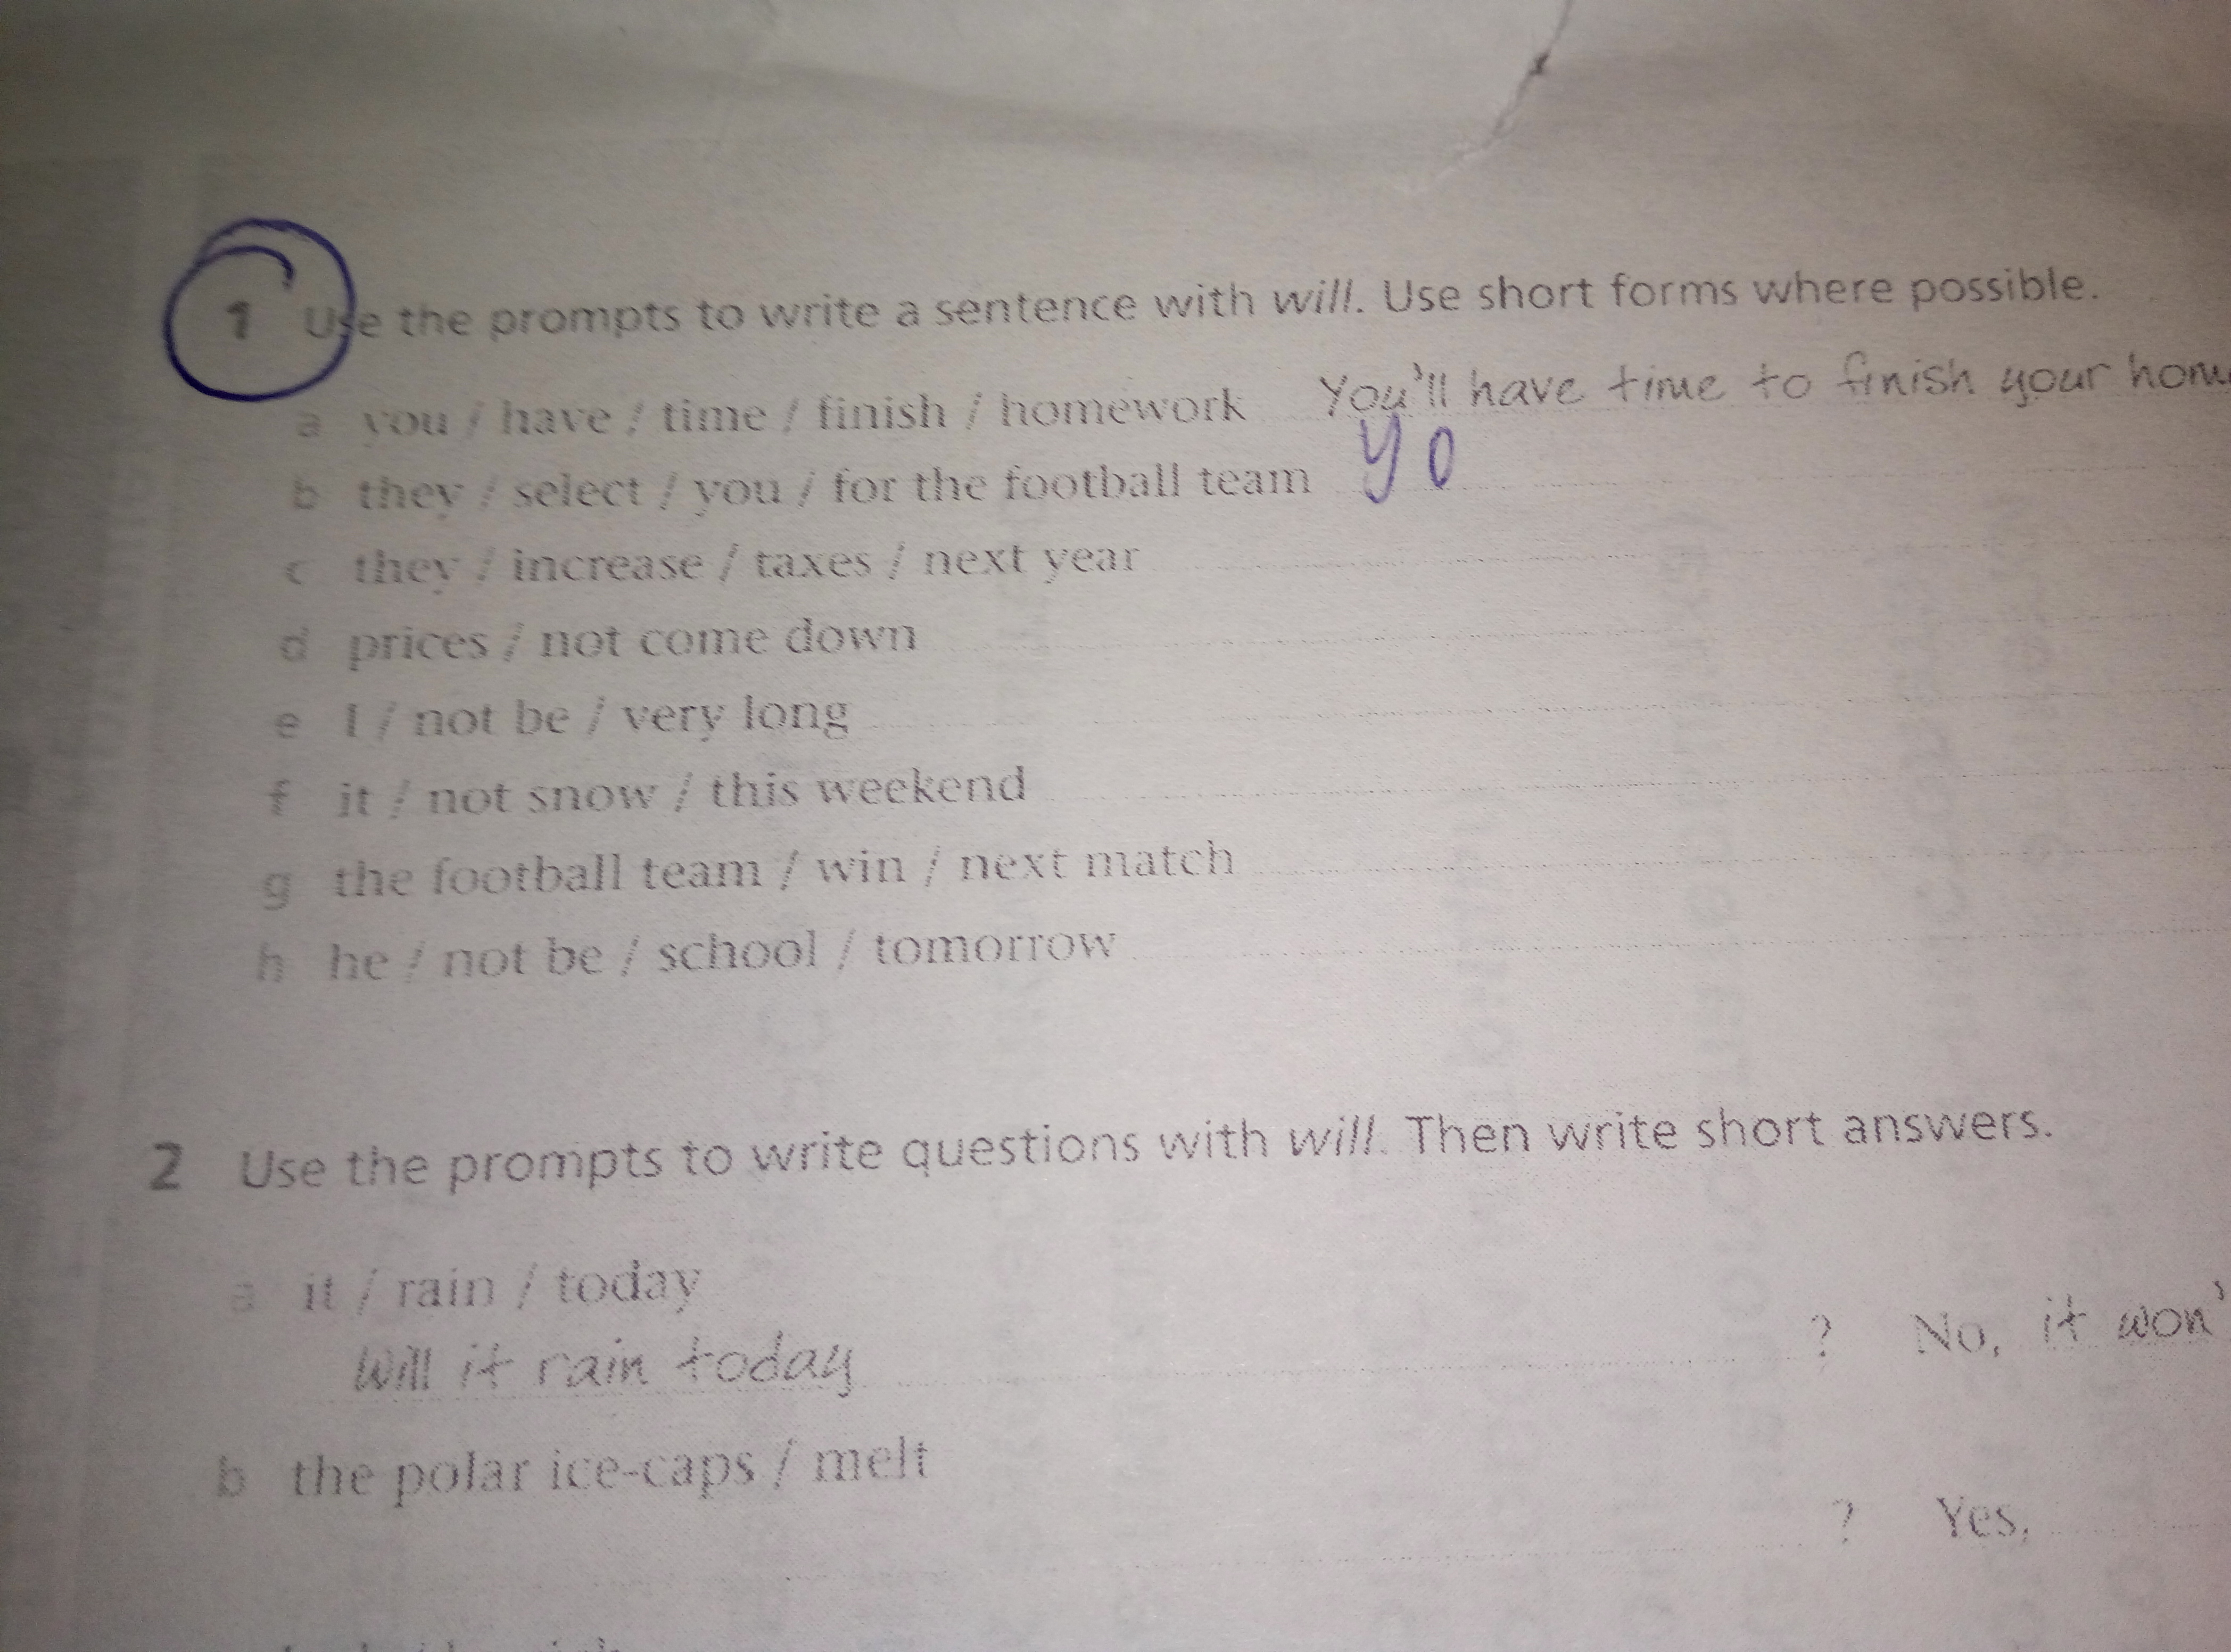 1 Use the prompts to write a sentence with will. Use short forms where possible.
a you / have / time / finish / homework You'll have time to finish your hom
b they / select / you / for the football team yo
c they / increase / taxes / next year
d prices / not come down
e I / not be / very long
f it / not snow / this weekend
g the football team / win / next match
h he / not be / school / tomorrow
2 Use the prompts to write questions with will. Then write short answers.
a it / rain / today
Will it rain today ? No, it won'
b the polar ice-caps / melt
? Yes,